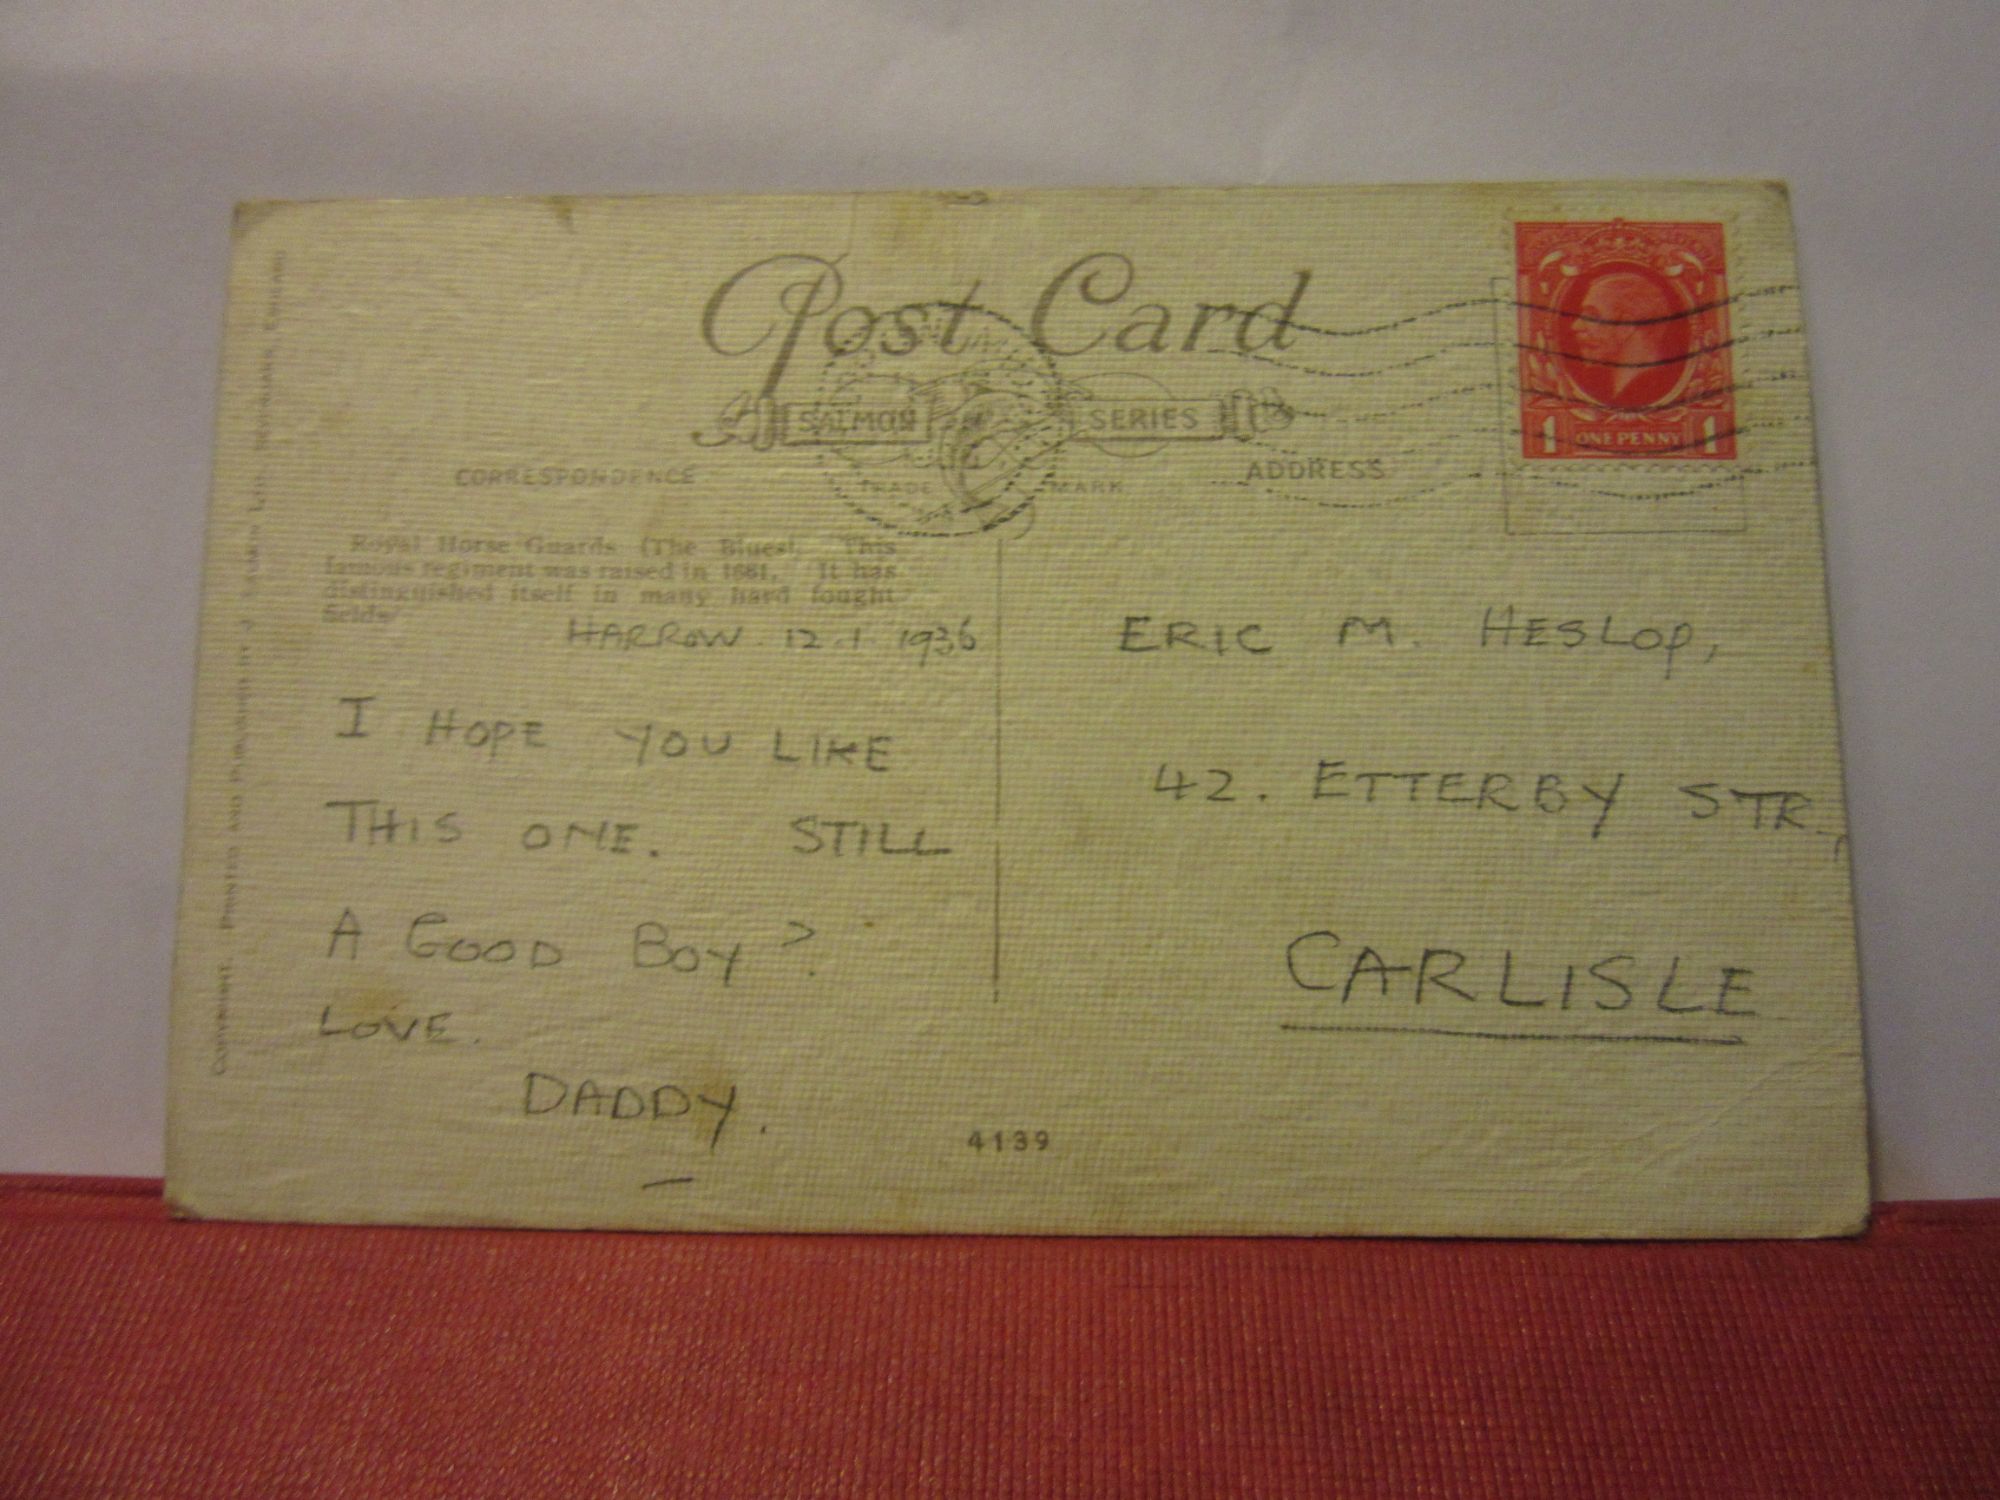 Post Card
SALMON SERIES
TRADE MARK
CORRESPONDENCE
ADDRESS
1 ONE PENNY 1
Royal Horse Guards (The Blues). This
famous regiment was raised in 1661. It has
distinguished itself in many hard fought
fields
HARROW. 12.1.1936
I HOPE YOU LIKE
THIS ONE. STILL
A GOOD BOY?
LOVE.
DADDY.
ERIC M. HESLOP,
42. ETTERBY STR,
CARLISLE
4139
COPYRIGHT. PRINTED AND PUBLISHED BY J. SALMON LTD. SEVENOAKS, ENGLAND